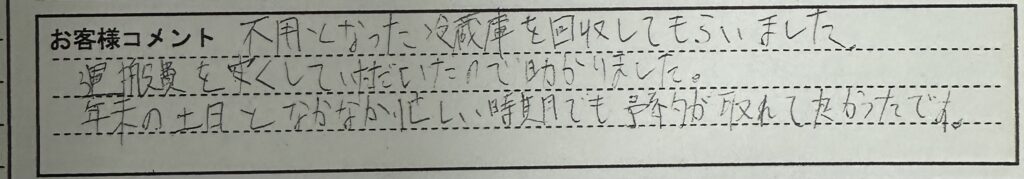 お客様コメント 不用となった冷蔵庫を回収してもらいました。
運搬費を安くしていただいたので助かりました。
年末の土日となかなか忙しい時期でも予約が取れてよかったです。